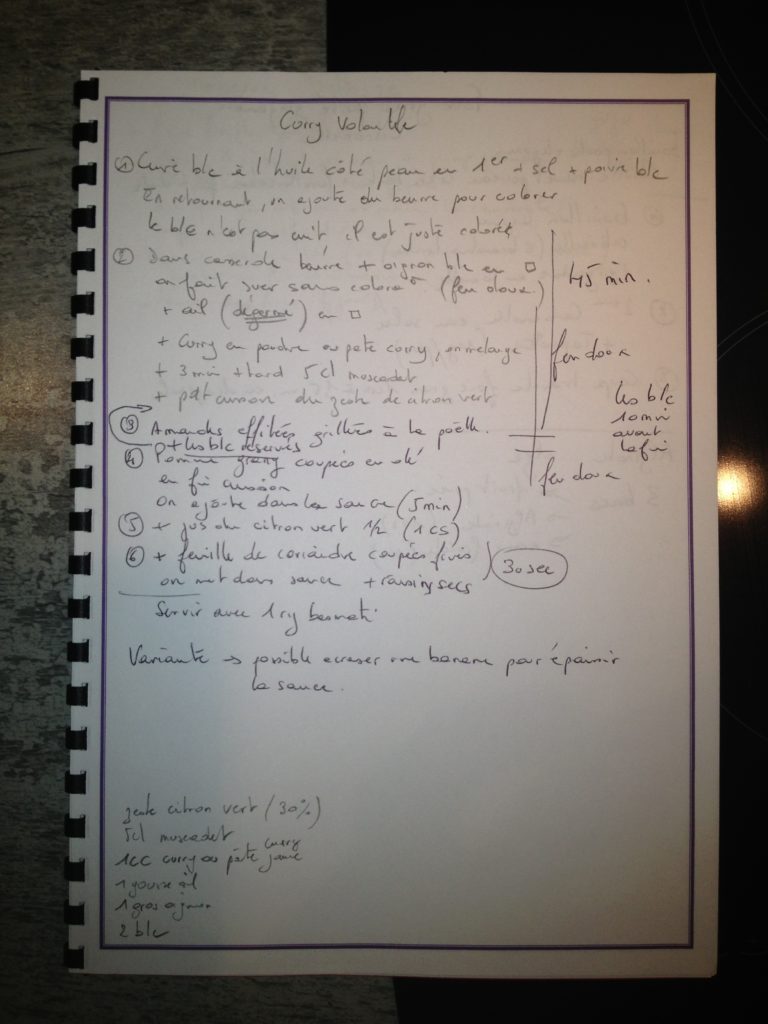 Curry Volaille
① Cuire blc à l'huile côté peau en 1er + sel + poivre blc
En retournant, on ajoute du beurre pour colorer
le blc n'est pas cuit, il est juste coloré
② Dans casserole beurre + oignon blc en □
on fait suer sans color° (feu doux)
+ ail (dégermé) en □
+ curry en poudre ou pâte curry, on mélange
+ 3 min + tard 5 cl muscadet
+ pdt cuisson du zeste de citron vert
45 min.
feu doux
les blc
10 min
avant
la fin
feu doux
③ Amandes effilées grillées à la poêlle.
+ les blc réservés
④ Pomme grany coupées en dé
en fin cuisson
on ajoute dans la sauce (5 min)
⑤ + jus du citron vert 1/2 (1 cs)
⑥ + feuille de coriandre coupées fines
on met dans sauce + raisins secs
30 sec
Servir avec 1 ry basmati
Variante → possible écraser une banane pour épaissir
la sauce.
zeste citron vert (30%)
5cl muscadet
1cc curry ou pâte curry jaune
1 gousse ail
1 gros oignon
2 blc